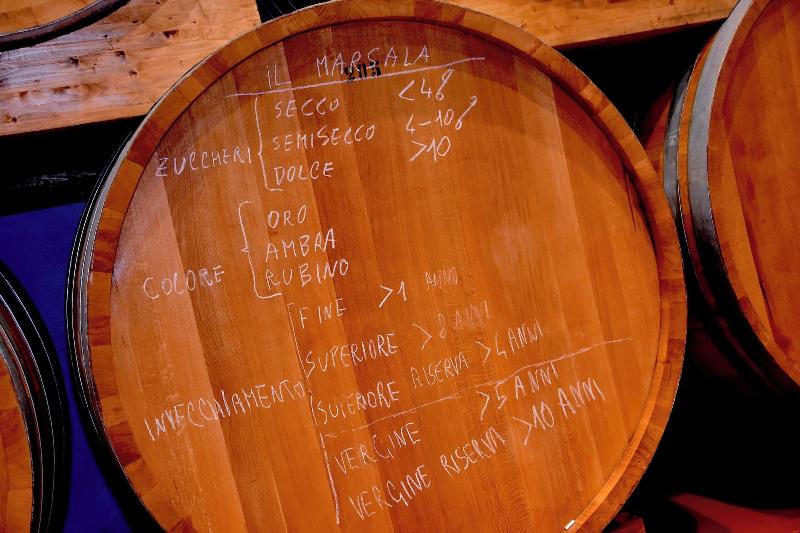 IL MARSALA
203
ZUCCHERI
SECCO <4%
SEMISECCO 4-10%
DOLCE >10
COLORE
ORO
AMBRA
RUBINO
INVECCHIAMENTO
FINE >1 ANNO
SUPERIORE >2 ANNI
SUPERIORE RISERVA >4 ANNI
VERGINE >5 ANNI
VERGINE RISERVA >10 ANNI